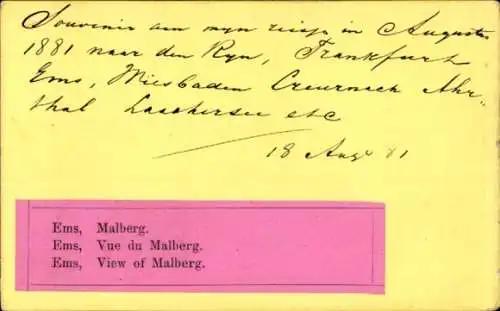 Souvenir aan myn reisje in Augustus
1881 naar den Ryn, Frankfurt
Ems, Wiesbaden Creuznach Ahr-
thal Laachersee etc
18 Aug 81
Ems, Malberg.
Ems, Vue du Malberg.
Ems, View of Malberg.